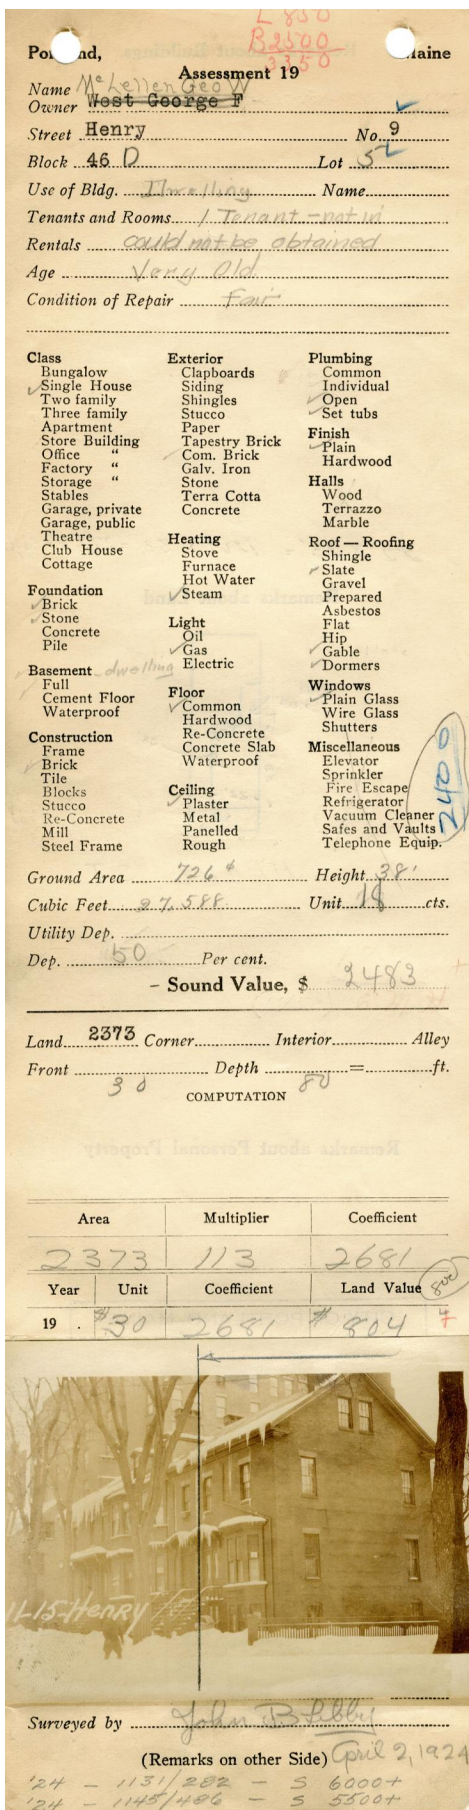 L 850
B2500
3350
Po    nd,    Maine
Assessment 19
Name McLellen Geo W
Owner West George F
Street Henry No. 9
Block 46 D Lot 5
Use of Bldg. Dwelling Name
Tenants and Rooms 1 Tenant - not in
Rentals could not be obtained
Age Very Old
Condition of Repair Fair
Class
Bungalow
Single House
Two family
Three family
Apartment
Store Building
Office "
Factory "
Storage "
Stables
Garage, private
Garage, public
Theatre
Club House
Cottage
Foundation
Brick
Stone
Concrete
Pile
Basement - dwelling
Full
Cement Floor
Waterproof
Construction
Frame
Brick
Tile
Blocks
Stucco
Re-Concrete
Mill
Steel Frame
Exterior
Clapboards
Siding
Shingles
Stucco
Paper
Tapestry Brick
Com. Brick
Galv. Iron
Stone
Terra Cotta
Concrete
Heating
Stove
Furnace
Hot Water
Steam
Light
Oil
Gas
Electric
Floor
Common
Hardwood
Re-Concrete
Concrete Slab
Waterproof
Ceiling
Plaster
Metal
Panelled
Rough
Plumbing
Common
Individual
Open
Set tubs
Finish
Plain
Hardwood
Halls
Wood
Terrazzo
Marble
Roof — Roofing
Shingle
Slate
Gravel
Prepared
Asbestos
Flat
Hip
Gable
Dormers
Windows
Plain Glass
Wire Glass
Shutters
Miscellaneous
Elevator
Sprinkler
Fire Escape
Refrigerator
Vacuum Cleaner
Safes and Vaults
Telephone Equip.
2400
Ground Area 726 Height 38'
Cubic Feet 27,588 Unit 18 cts.
Utility Dep.
Dep. 50 Per cent.
- Sound Value, $ 2483
Land 2373 Corner Interior Alley
Front 30 Depth 80 = ft.
COMPUTATION
Area Multiplier Coefficient
2373 113 2681
Year Unit Coefficient Land Value 800
19 . $30 2681 $ 804
11-15-Henry
Surveyed by John B Libby
(Remarks on other Side) April 2, 1924
'24 - 1131/282 - S 6000+
'24 - 1145/486 - S 5500+